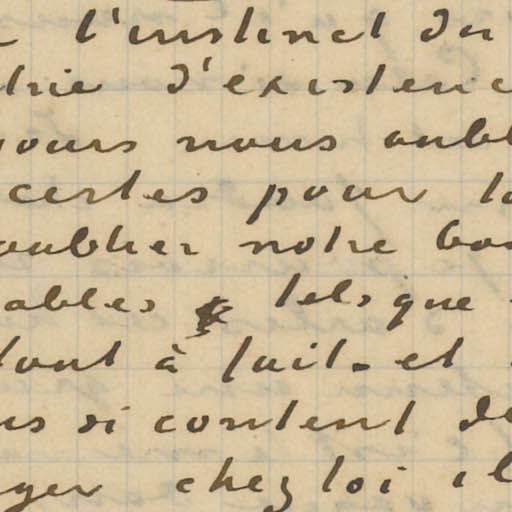 l'instinct du
trie d'existenc
jours nous oubl
certes pour to
oublier notre bon
ables tels que
tout à fait. et
ns si content de
ger chez toi il